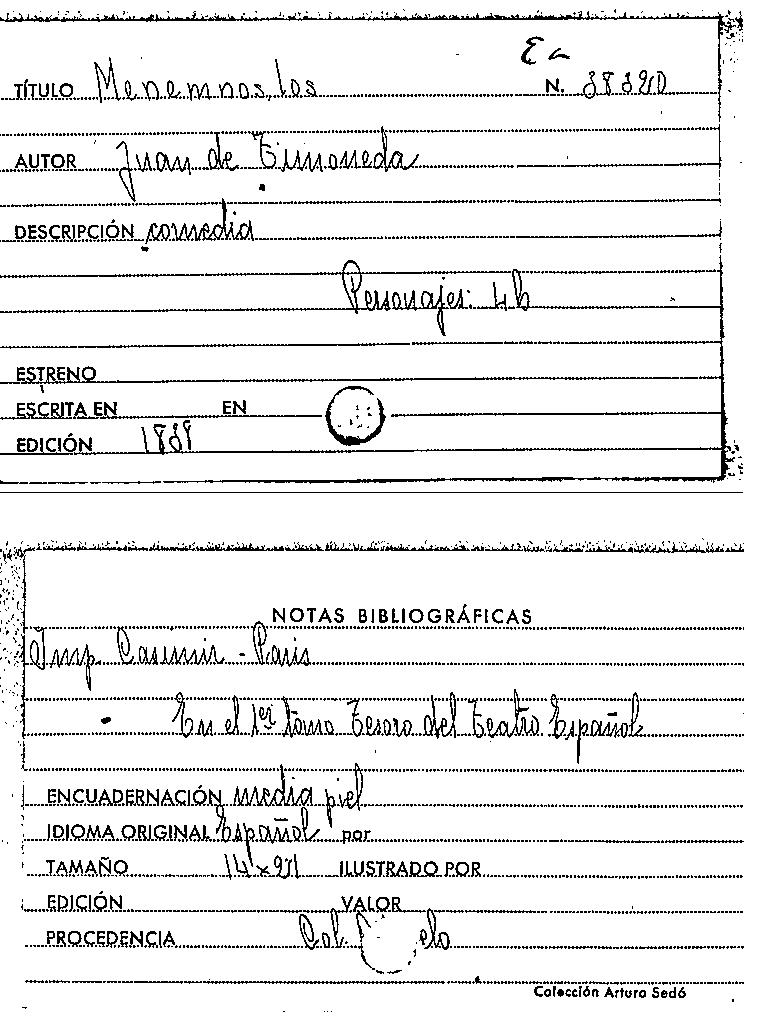 Ea
TÍTULO Menemnos, los N. 38320
AUTOR Juan de Timoneda
DESCRIPCIÓN comedia
Personajes: 4 h
ESTRENO
ESCRITA EN EN
EDICIÓN
NOTAS BIBLIOGRÁFICAS
Imp. Casimir - Paris
En el 1er tomo Tesoro del Teatro Español
ENCUADERNACIÓN media piel
IDIOMA ORIGINAL Español por
TAMAÑO ILUSTRADO POR
EDICIÓN VALOR
PROCEDENCIA Col.
Colección Arturo Sedó